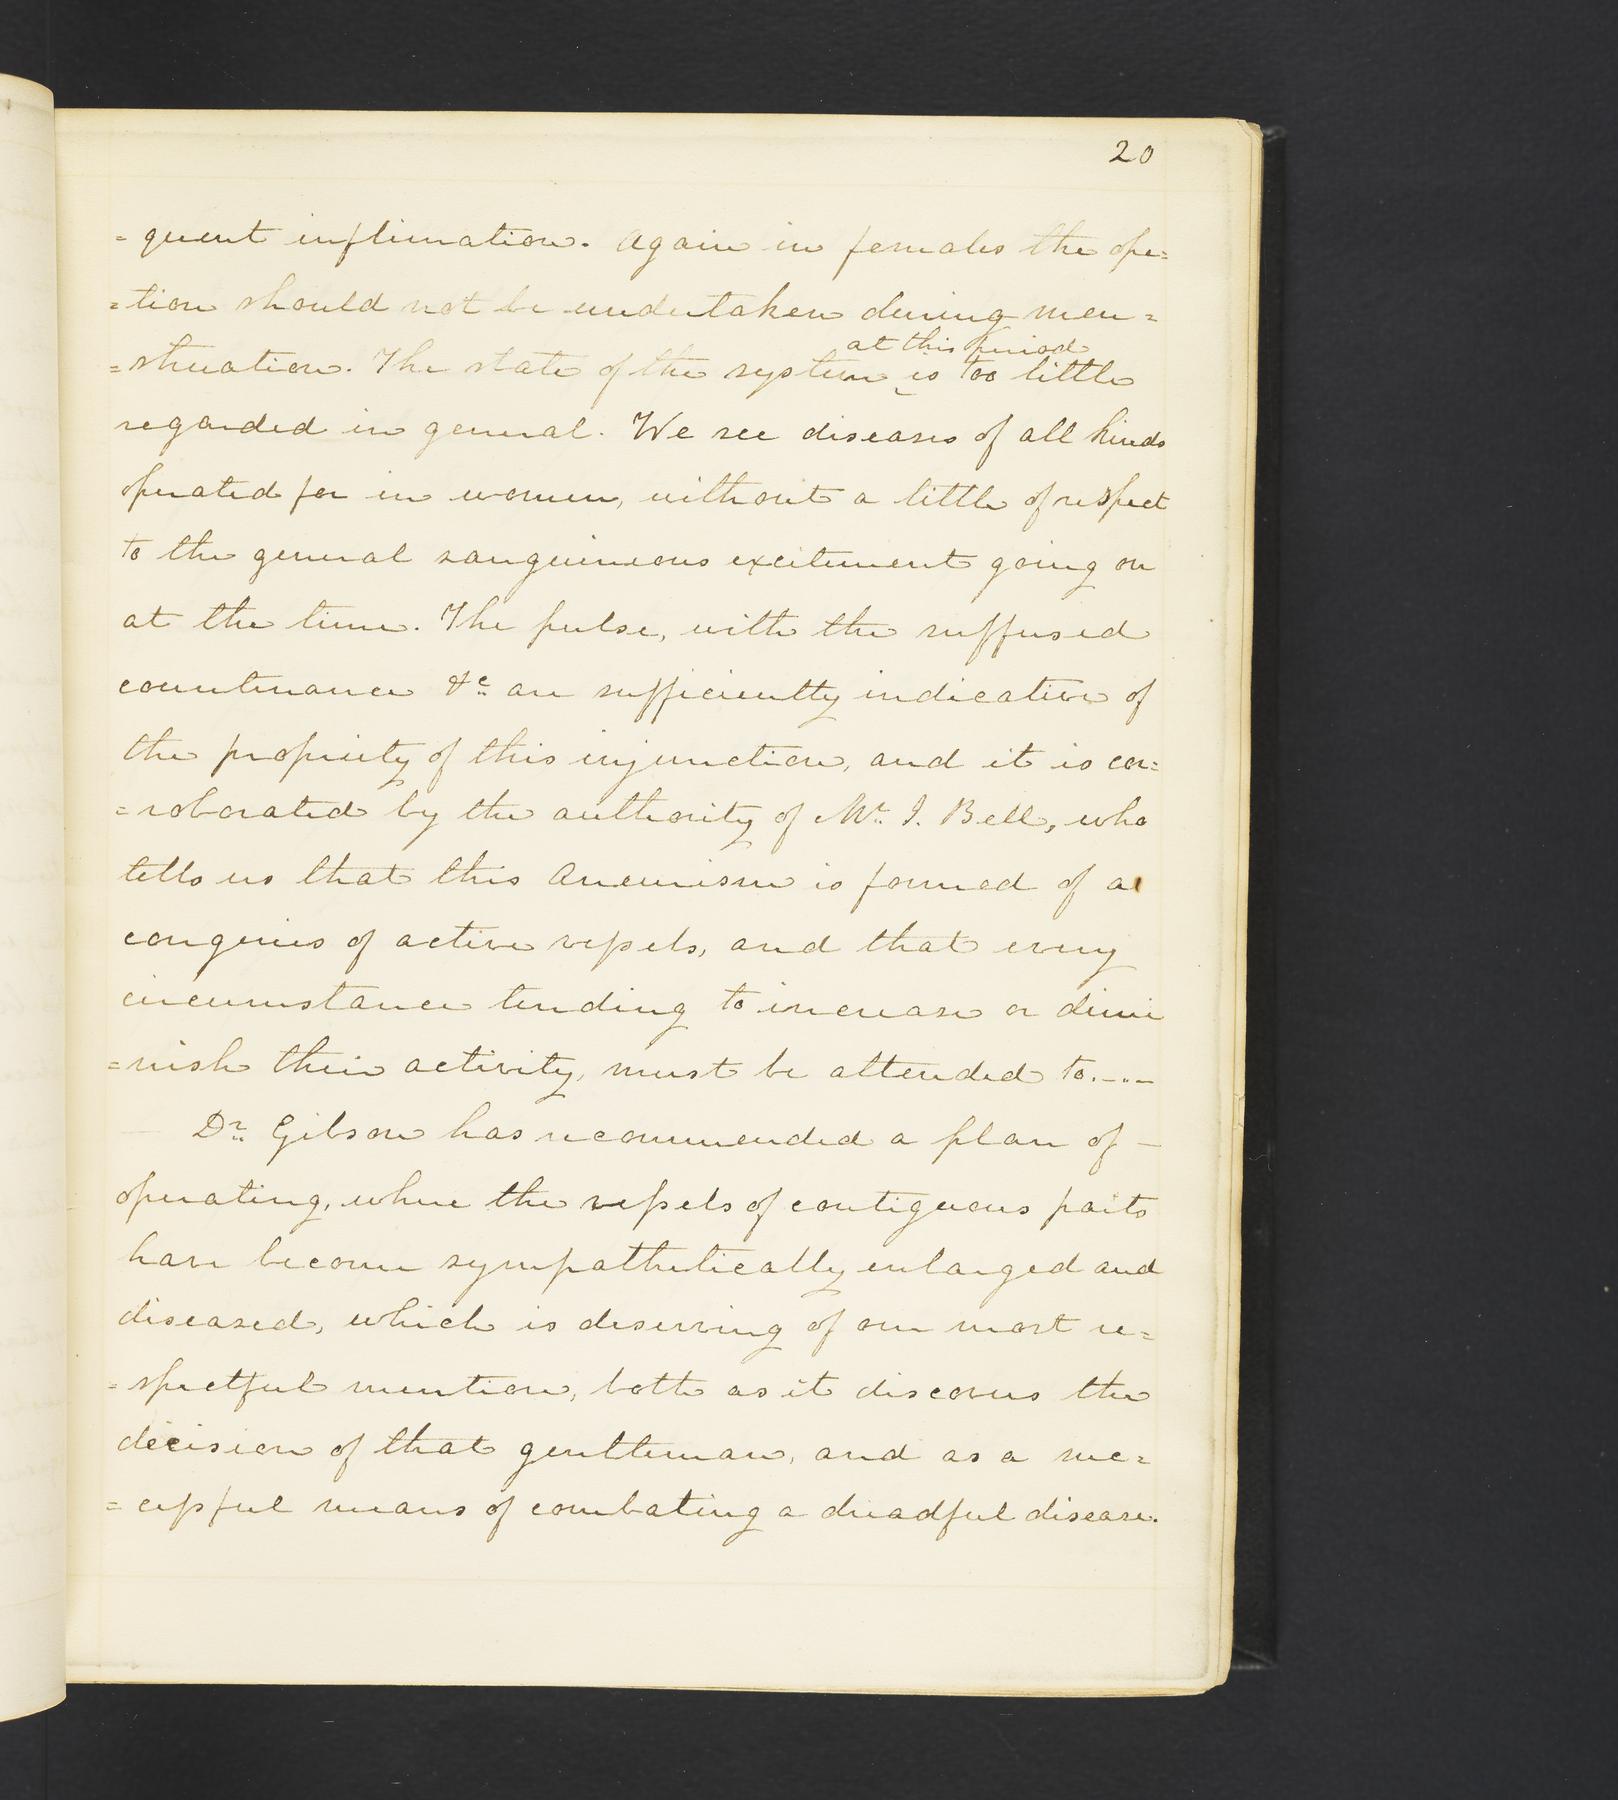 20
= quent inflimation. Again in females the ope=
=tion should not be undertaken during men=
at this period
=struation. The state of the system ‸ is too little
regarded in general. We see diseases of all kinds
operated for in women, without a little of respect
to the general sanguineous excitement going on
at the time. The pulse, with the suffused
countenance &c are sufficiently indicative of
the propriety of this injunction, and it is cor=
=roborated by the authority of Mr. J. Bell, who
tells us that this Aneurism is formed of a
congeries of active vessels, and that every
circumstance tending to increase or dimi
=nish their activity, must be attended to.-.-
Dr. Gibson has recommended a plan of —
operating, where the vessels of contiguous parts
have become sympathetically enlarged and
diseased, which is deserving of our most re=
=spectful mention, both as it discovers the
decision of that gentleman, and as a suc=
=cessful means of combating a dreadful disease.